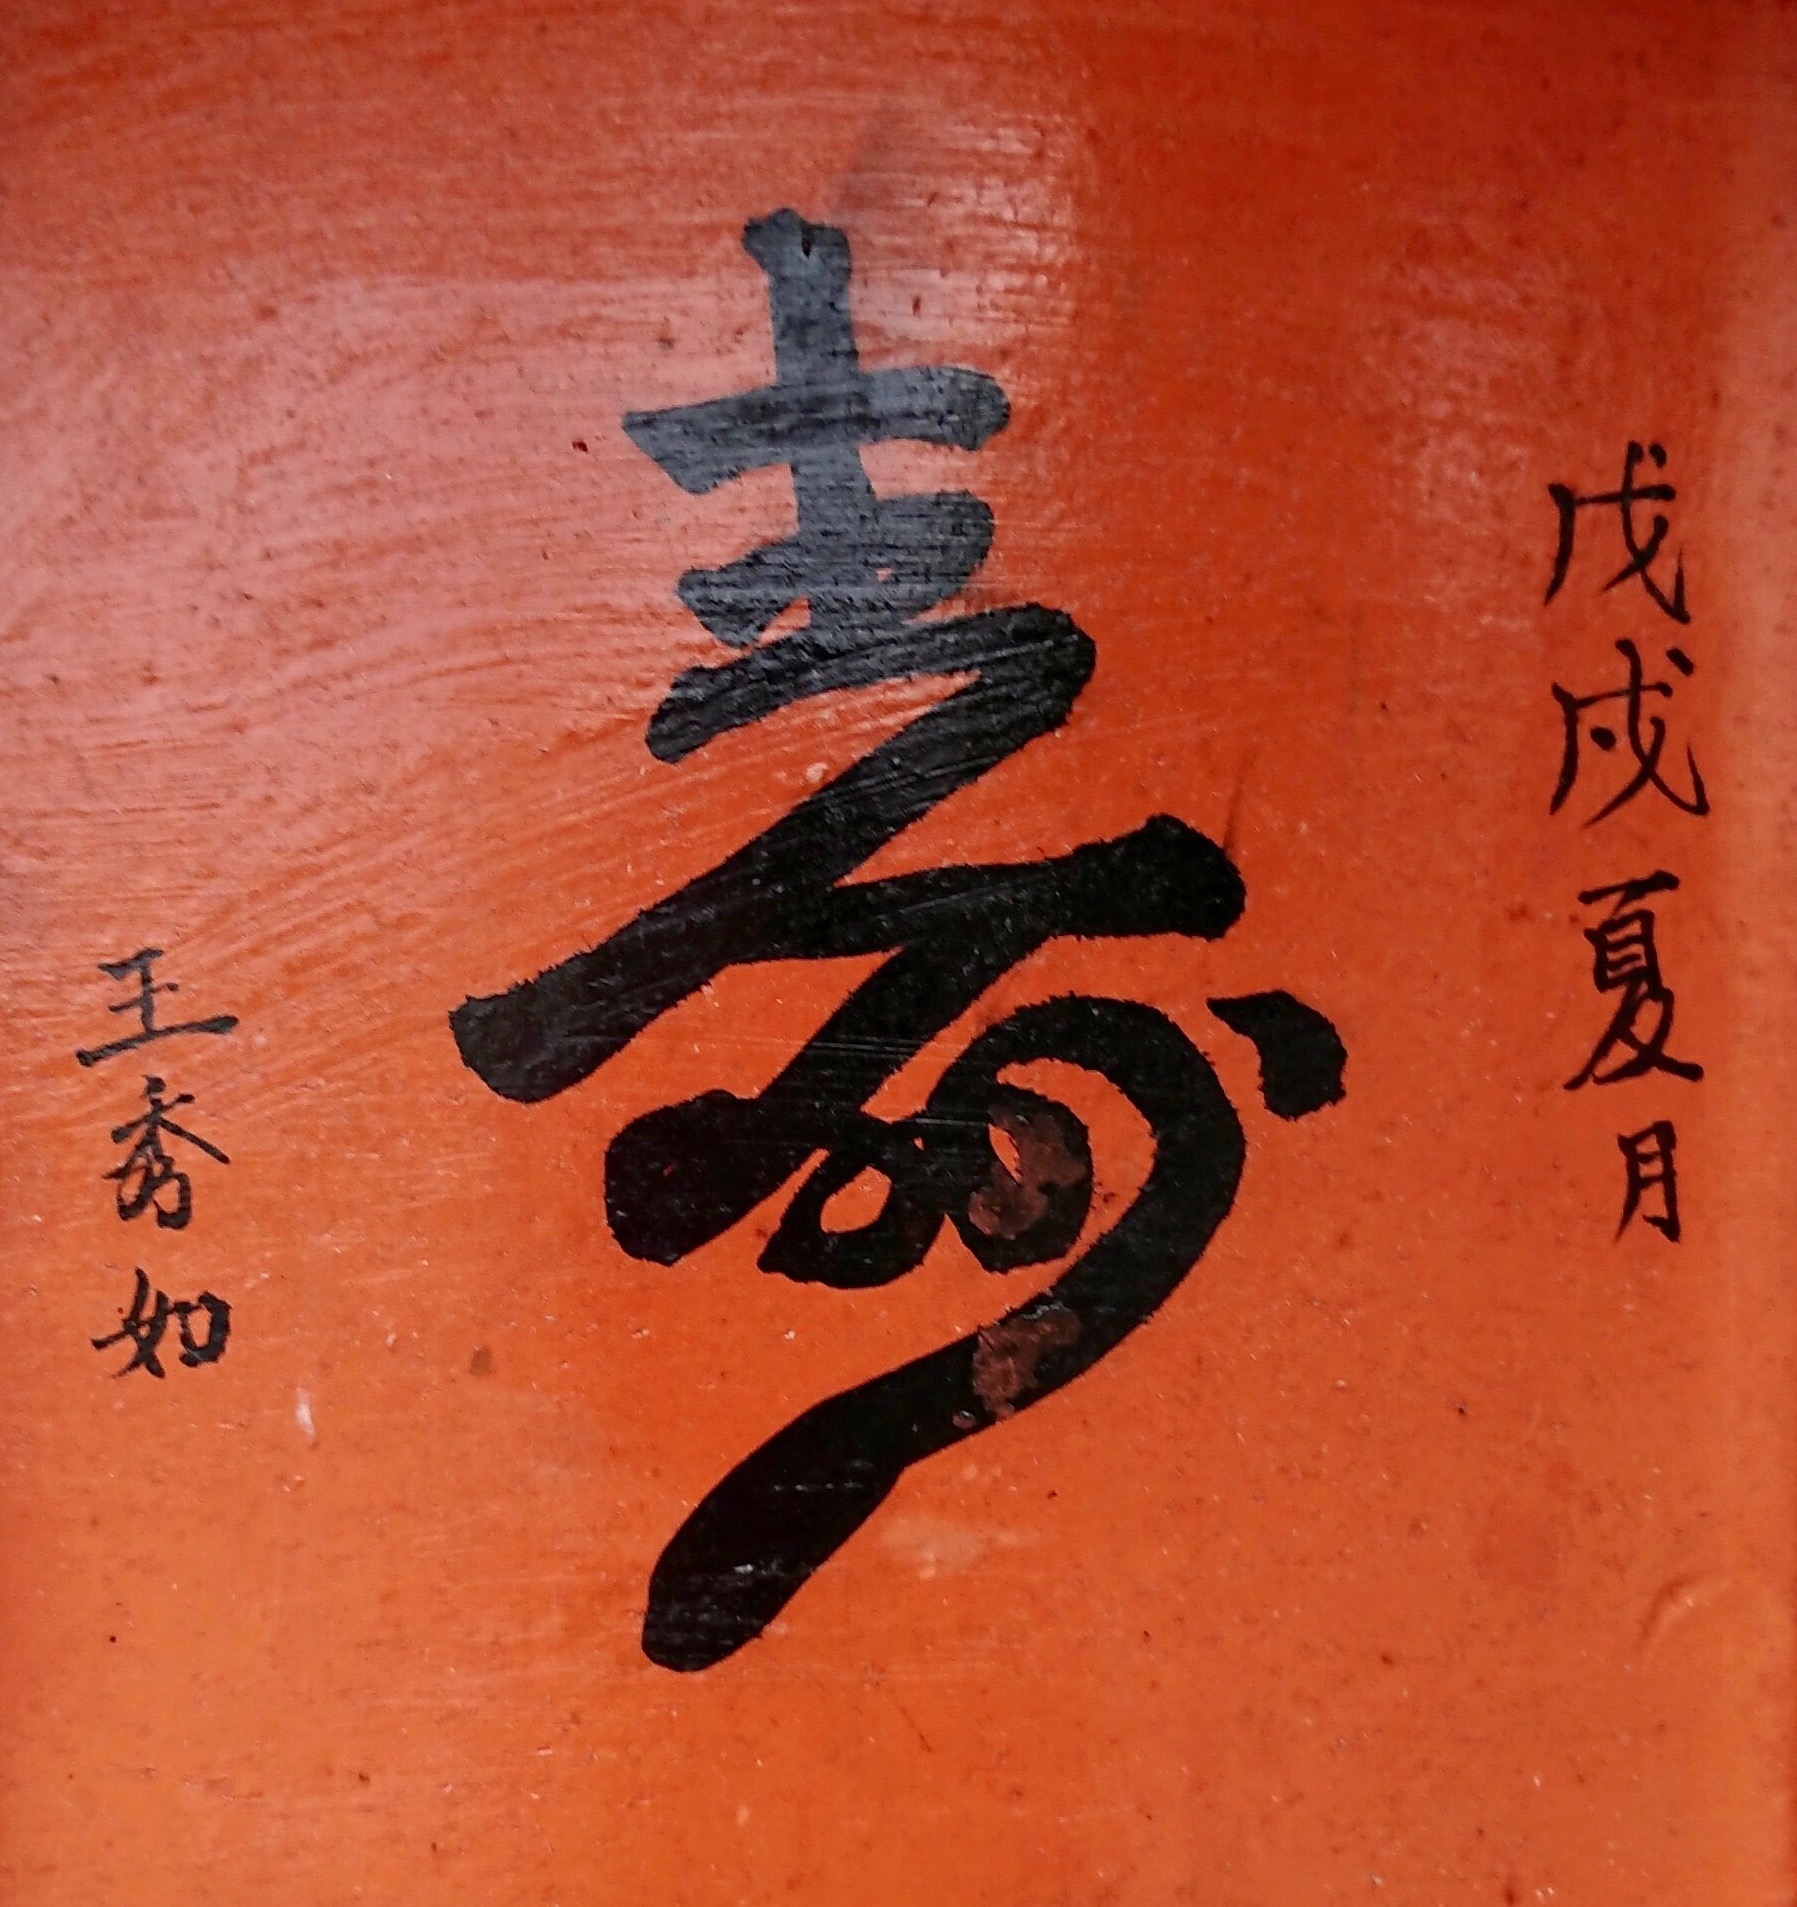 戊戌夏月
壽
王秀如